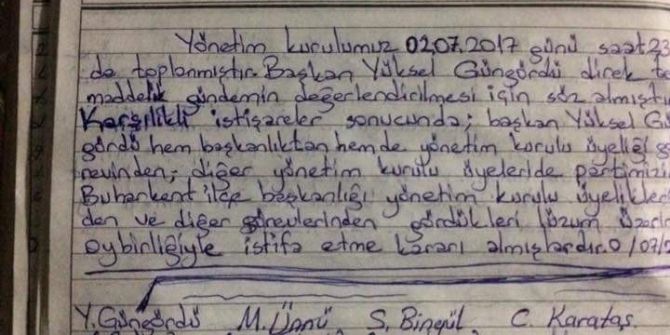 Yönetim kurulumuz 02.07.2017 günü saat 23
da toplanmıştır. Başkan Yüksel Güngördü direk t
maddelik gündemin değerlendirilmesi için söz almıştı
Karşılıkli istişareler sonucunda; başkan Yüksel Gü
gördü hem başkanlıktan hemde yönetim kurulu üyeliği g
revinden; diğer yönetim kurulu üyeleride partimizi
Buharkent ilçe başkanlığı yönetim kurulu üyelikler
den ve diğer görevlerinden gördükleri lüzum üzeri
oybirliğiyle istifa etme kararı almışlardır. 0 /07/2
Y. Güngördü M. Ünnü S. Bingül C. Karataş